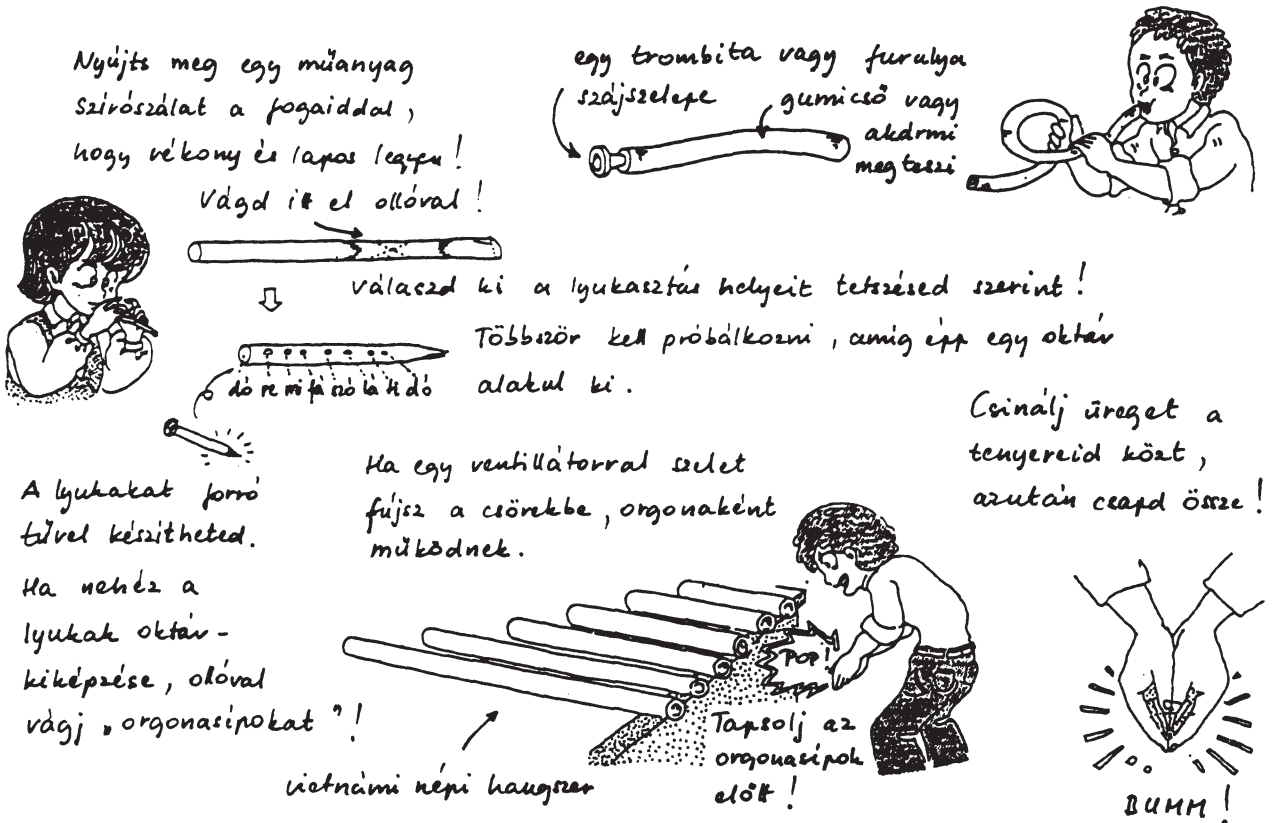 Nyújts meg egy műanyag
szívószálat a fogaiddal,
hogy vékony és lapos legyen!
Vágd itt el ollóval!
egy trombita vagy furulya
szájszelepe
gumicső vagy
akármi
megteszi
válaszd ki a lyukasztás helyeit tetszésed szerint!
Többször kell próbálkozni, amíg épp egy oktáv
alakul ki.
dó re mi fá szó lá ti dó
A lyukakat forró
tűvel készítheted.
Ha nehéz a
lyukak oktáv-
kiképzése, ollóval
vágj „orgonasípokat"!
Ha egy ventillátorral szelet
fújsz a csövekbe, orgonaként
működnek.
POP!
Tapsolj az
orgonasípok
előtt!
vietnámi népi hangszer
Csinálj üreget a
tenyereid közt,
azután csapd össze!
BUMM!